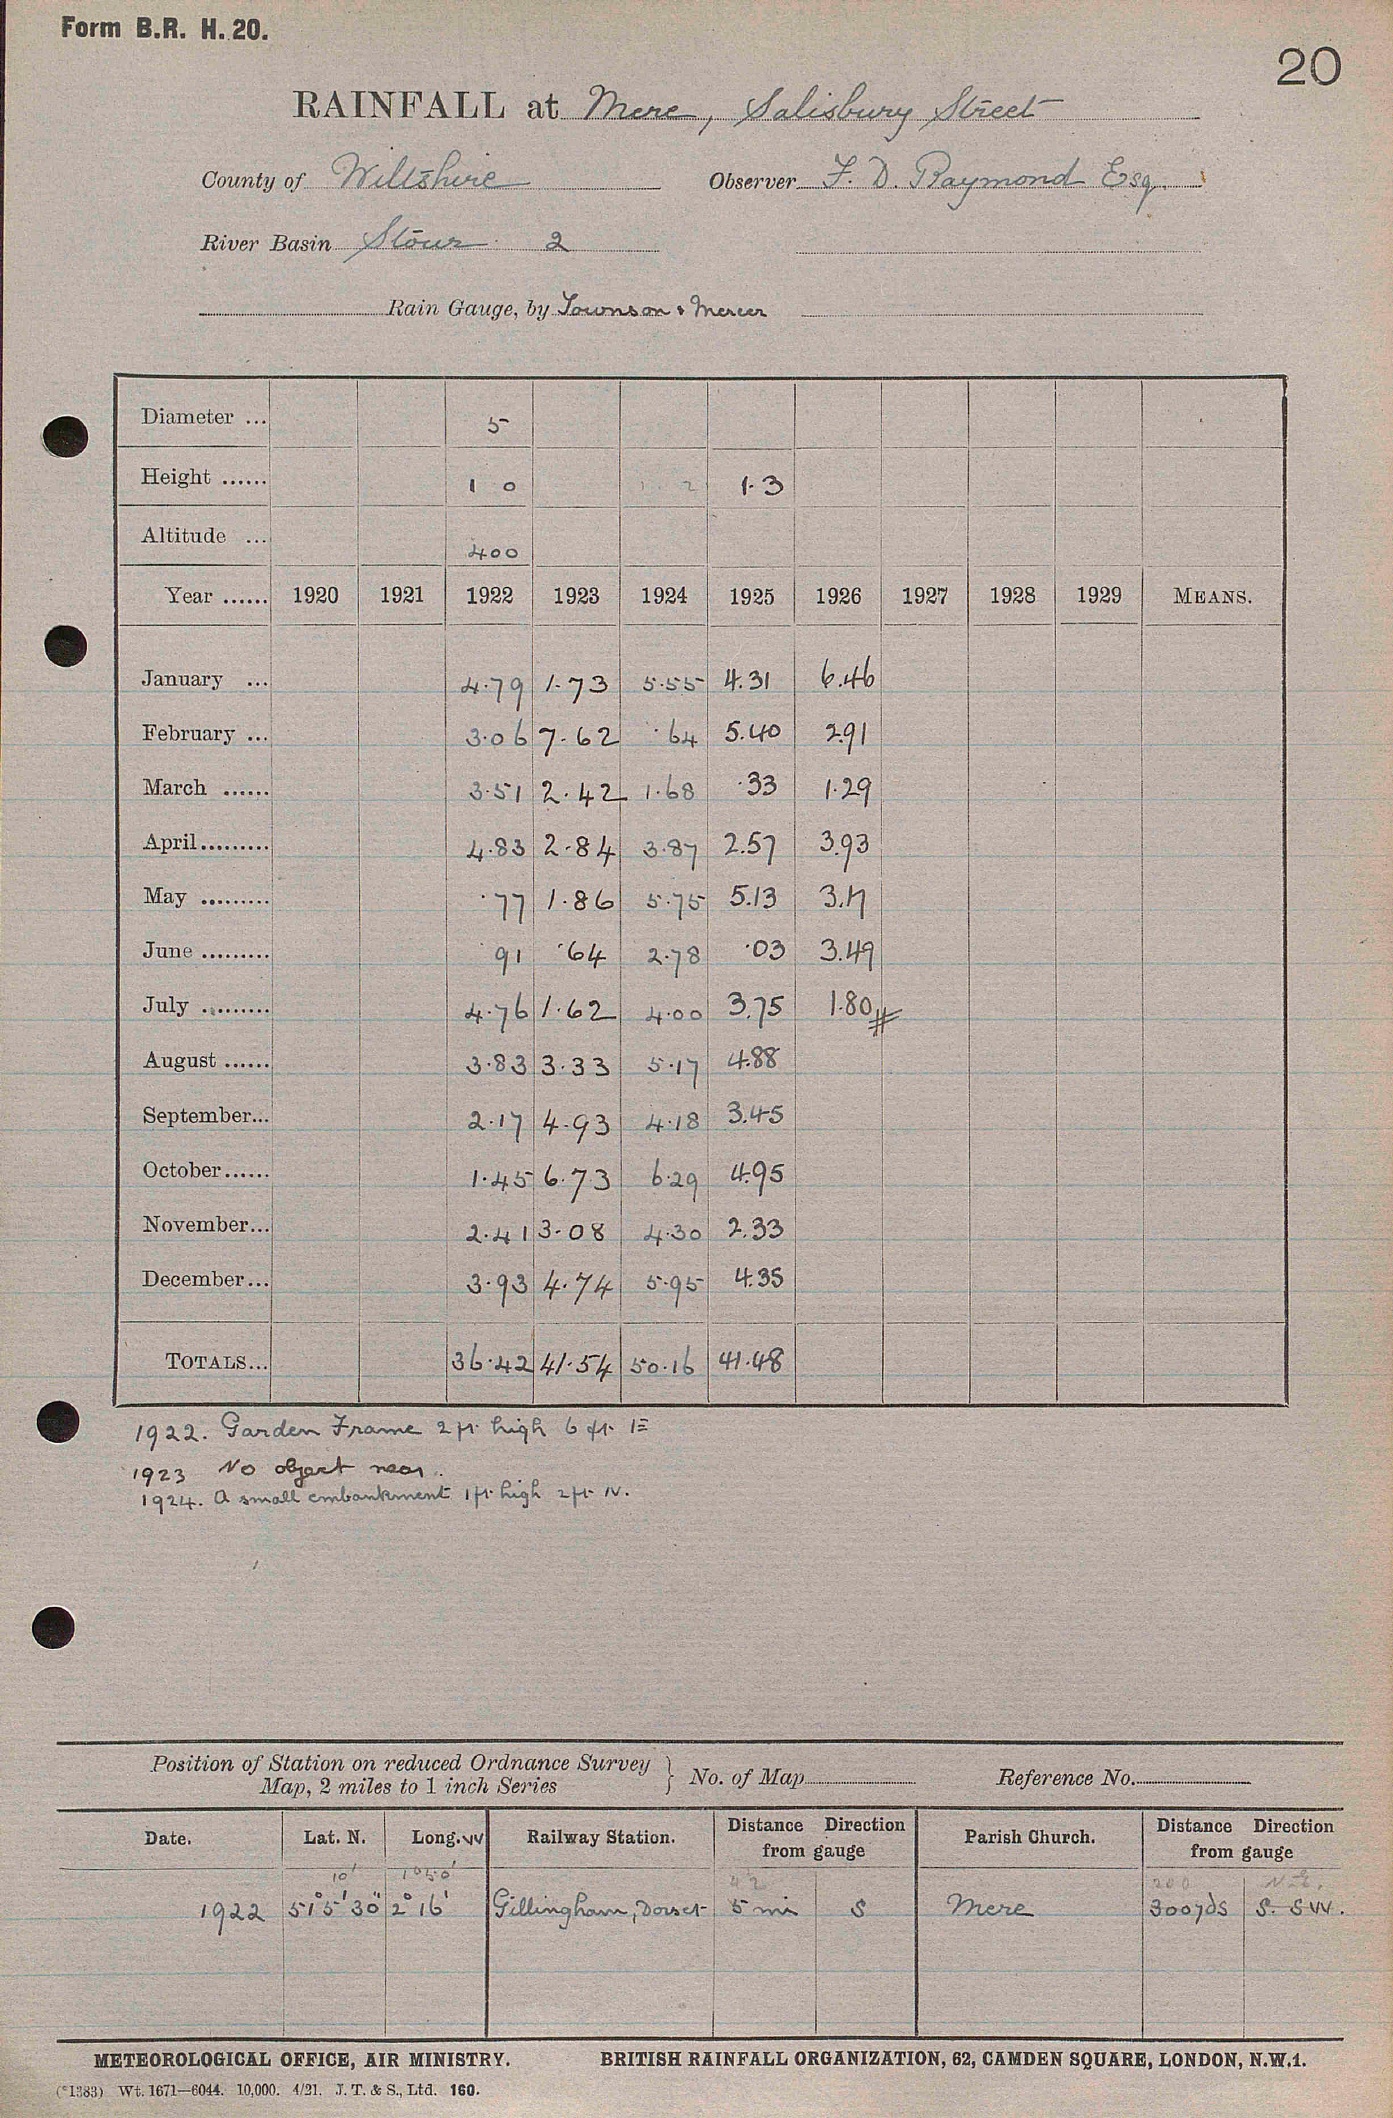 Form B.R. H. 20.
20
RAINFALL at Mere, Salisbury Street
County of Wiltshire Observer F. D. Raymond Esq.
River Basin Stour 2
Rain Gauge, by Townson & Mercer
Diameter ... 5
Height ...... 1 0 1. 2 1.3
Altitude ... 400
Year ...... 1920 1921 1922 1923 1924 1925 1926 1927 1928 1929 MEANS.
January ... 4.79 1.73 5.55 4.31 6.46
February ... 3.06 7.62 .64 5.40 2.91
March ...... 3.51 2.42 1.68 .33 1.29
April......... 4.83 2.84 3.87 2.57 3.93
May ......... .77 1.86 5.75 5.13 3.17
June ......... 91 .64 2.78 .03 3.49
July ......... 4.76 1.62 4.00 3.75 1.80
August ...... 3.83 3.33 5.17 4.88
September... 2.17 4.93 4.18 3.45
October...... 1.45 6.73 6.29 4.95
November... 2.41 3.08 4.30 2.33
December... 3.93 4.74 5.95 4.35
TOTALS... 36.42 41.54 50.16 41.48
1922. Garden Frame 2 ft. high 6 ft.
1923 No object near.
1924. A small embankment 1 ft. high 2 ft. N.
Position of Station on reduced Ordnance Survey
Map, 2 miles to 1 inch Series } No. of Map Reference No.
Date. Lat. N. Long. W Railway Station. Distance Direction from gauge Parish Church. Distance Direction from gauge
10' 1°50' 4½ 200
1922 51°5'30" 2°16' Gillingham, Dorset 5 mi S Mere 300 yds S. SW.
METEOROLOGICAL OFFICE, AIR MINISTRY. BRITISH RAINFALL ORGANIZATION, 62, CAMDEN SQUARE, LONDON, N.W.1.
(*1383) Wt. 1671—6044. 10,000. 4/21. J. T. & S., Ltd. 160.